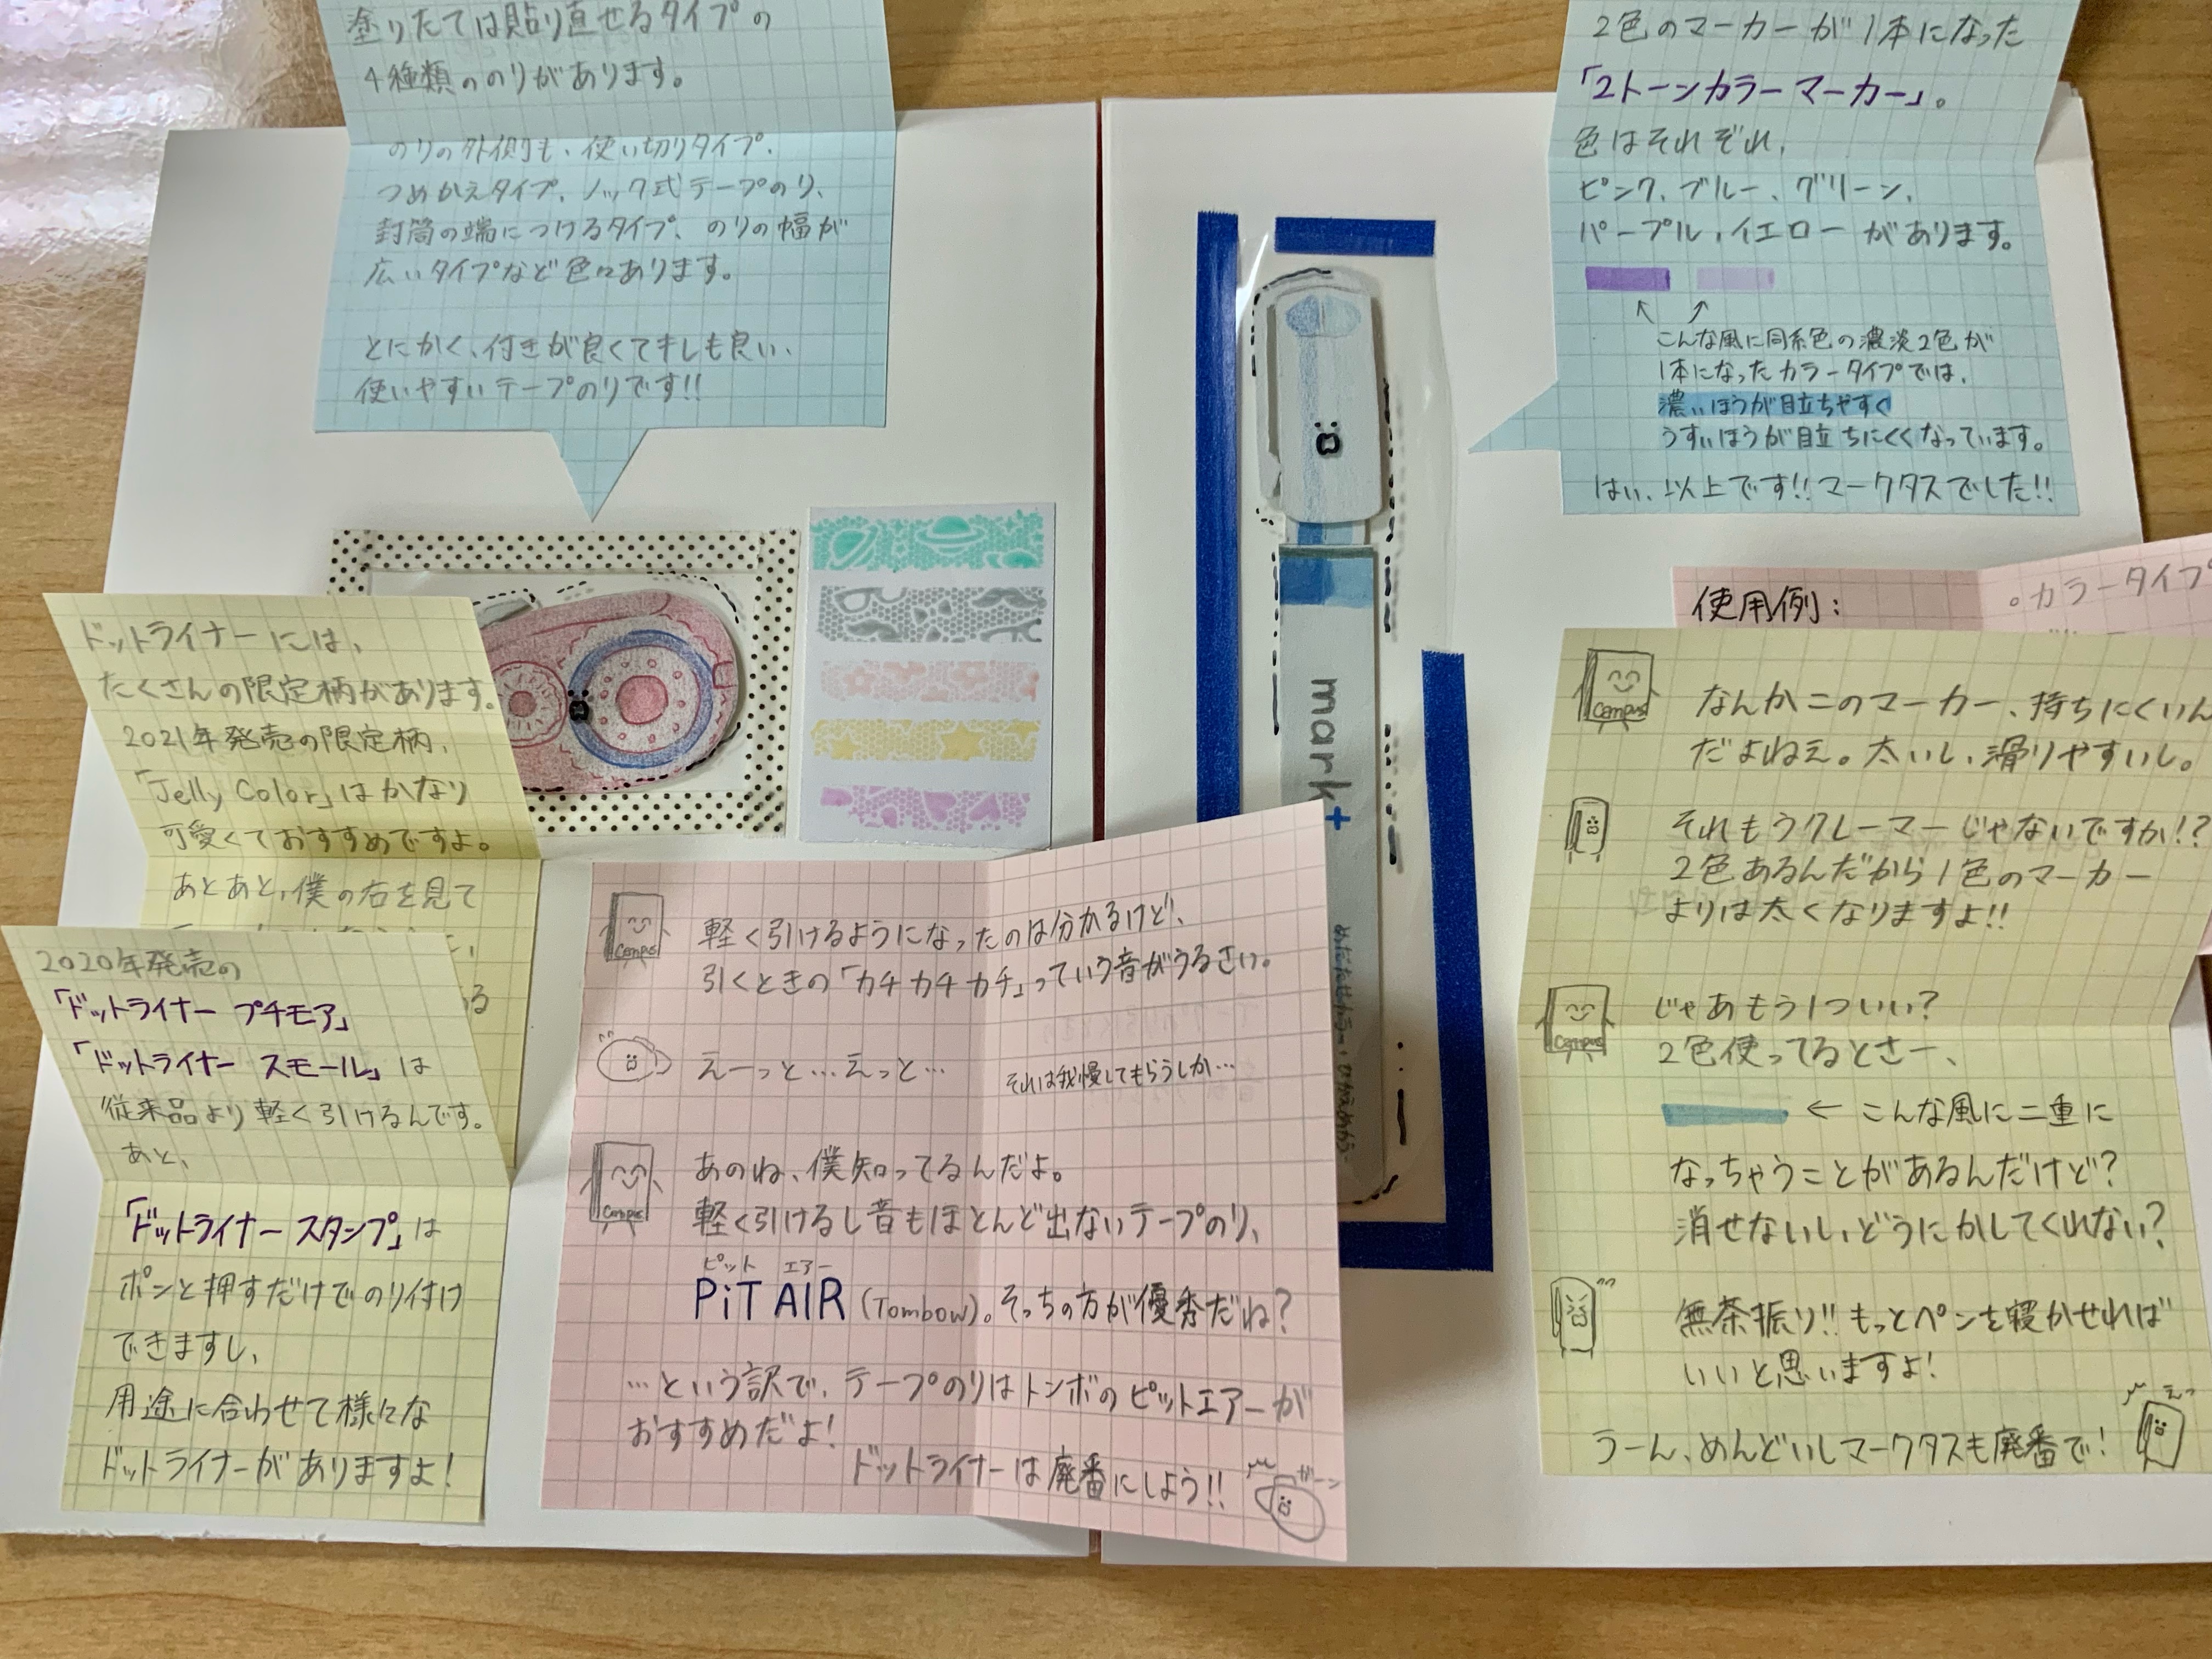 塗りたては貼り直せるタイプの
4種類ののりがあります。
のりの外側も、使い切りタイプ、
つめかえタイプ、ノック式テープのり、
封筒の端につけるタイプ、のりの幅が
広いタイプなど色々あります。
とにかく、付きが良くてキレも良い、
使いやすいテープのりです!!
ドットライナーには、
たくさんの限定柄があります。
2021年発売の限定柄、
「Jelly Color」はかなり
可愛くておすすめですよ。
あとあと、僕の右を見て
2020年発売の
「ドットライナー プチモア」
「ドットライナー スモール」は
従来品より軽く引けるんです。
あと、
「ドットライナー スタンプ」は
ポンと押すだけでのり付け
できますし、
用途に合わせて様々な
ドットライナーがありますよ!
Campus
軽く引けるようになったのは分かるけど、
引くときの「カチカチカチ」っていう音がうるさい。
えーっと…えっと… それは我慢してもらうしか…
Campus
あのね、僕知ってるんだよ。
軽く引けるし音もほとんど出ないテープのり、
ピット エアー
PiT AIR (Tombow)。そっちの方が優秀だね?
…という訳で、テープのりはトンボのピットエアーが
おすすめだよ!
ドットライナーは廃番にしよう!!
ガーン
mark+
2色のマーカーが1本になった
「2トーンカラーマーカー」。
色はそれぞれ、
ピンク、ブルー、グリーン、
パープル、イエローがあります。
こんな風に同系色の濃淡2色が
1本になったカラータイプでは、
濃いほうが目立ちやすく
うすいほうが目立ちにくくなっています。
はい、以上です!!マークタスでした!!
使用例:
。カラータイプ
Campus
なんかこのマーカー、持ちにくいん
だよねぇ。太いし、滑りやすいし。
それもうクレーマーじゃないですか!?
2色あるんだから1色のマーカー
よりは太くなりますよ!!
Campus
じゃあもう1ついい?
2色使ってるとさー、
← こんな風に二重に
なっちゃうことがあるんだけど?
消せないし、どうにかしてくれない?
無茶振り!!もっとペンを寝かせれば
いいと思いますよ!
うーん、めんどいしマークタスも廃番で!
えっ